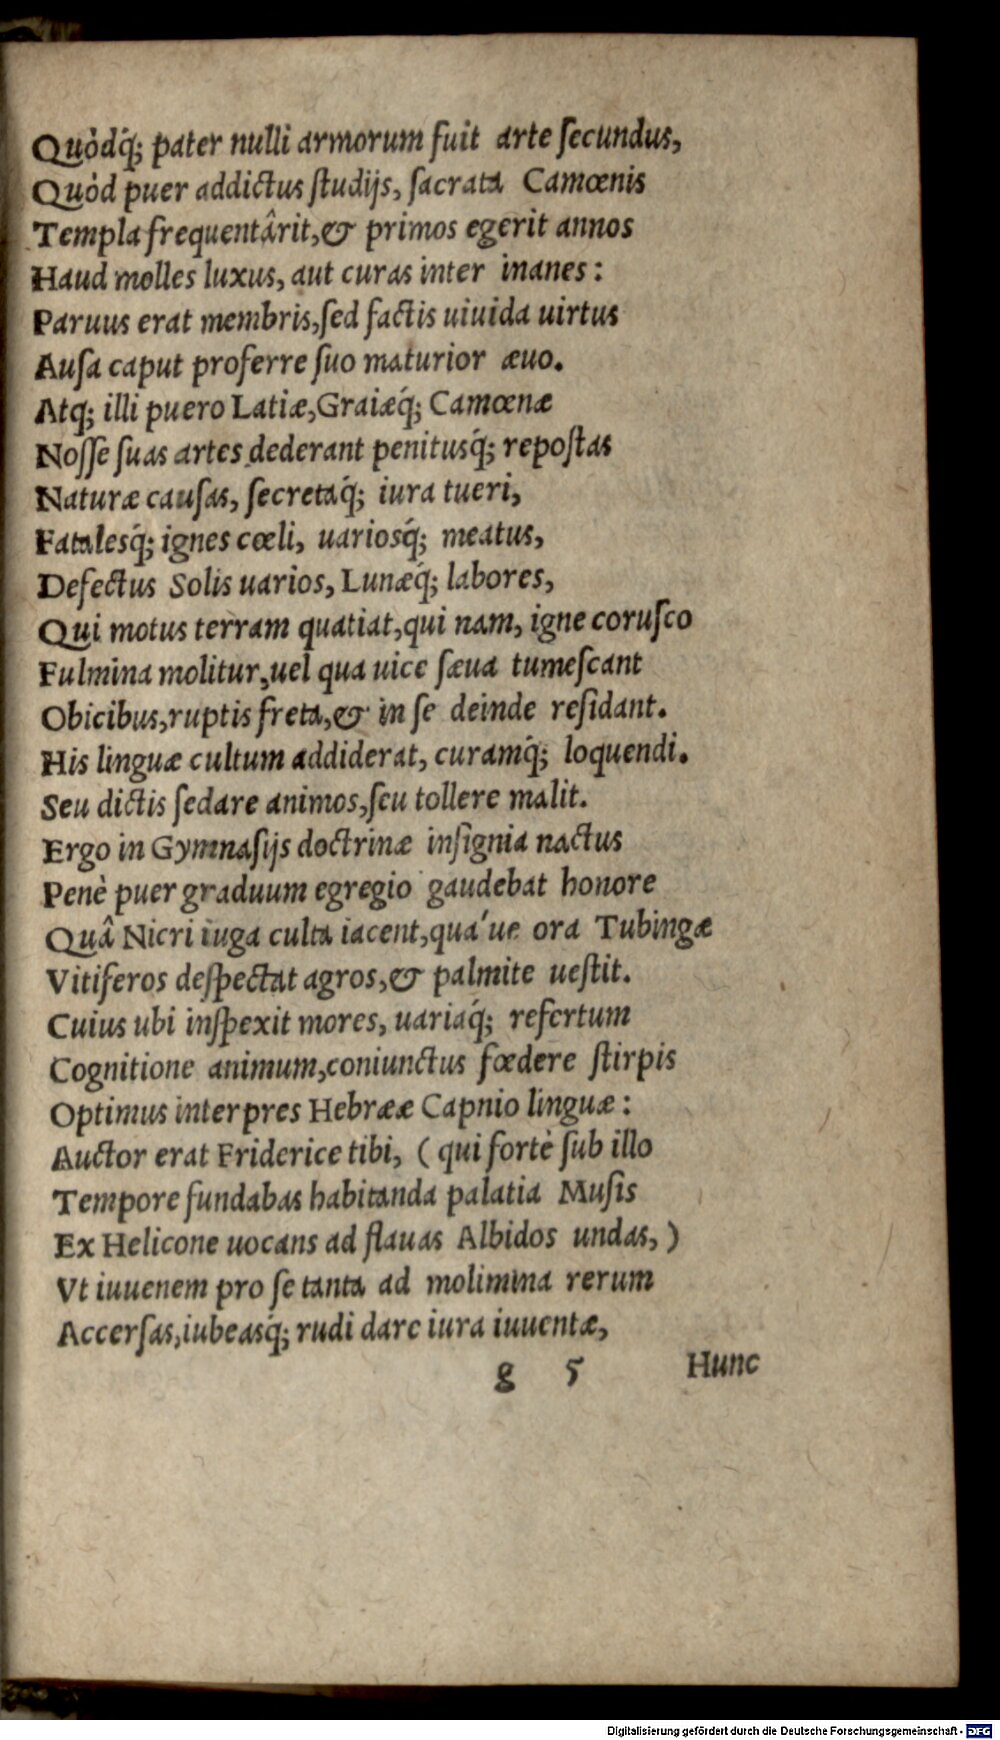 Quòdq́; pater nulli armorum fuit arte ſecundus,
Quòd puer addictus ſtudijs, ſacrata Camœnis
Templa frequentârit, & primos egerit annos
Haud molles luxus, aut curas inter inanes:
Paruus erat membris, ſed factis uiuida uirtus
Auſa caput proferre ſuo maturior æuo.
Atq; illi puero Latiæ, Graiæq́; Camœnæ
Noſſe ſuas artes dederant penitusq́; repoſtas
Naturæ cauſas, ſecretaq́; iura tueri,
Fatalesq́; ignes cœli, uariosq́; meatus,
Defectus Solis uarios, Lunæq́; labores,
Qui motus terram quatiat, qui nam, igne coruſco
Fulmina molitur, uel qua uice ſæua tumeſcant
Obicibus, ruptis freta, & in ſe deinde reſidant.
His linguæ cultum addiderat, curamq́; loquendi.
Seu dictis ſedare animos, ſeu tollere malit.
Ergo in Gymnaſijs doctrinæ inſignia nactus
Penè puer graduum egregio gaudebat honore
Quâ Nicri iuga culta iacent, qua´ue ora Tubingæ
Vitiferos deſpectat agros, & palmite ueſtit.
Cuius ubi inſpexit mores, uariaq́; refertum
Cognitione animum, coniunctus fœdere ſtirpis
Optimus interpres Hebrææ Capnio linguæ:
Auctor erat Friderice tibi, ( qui fortè ſub illo
Tempore fundabas habitanda palatia Muſis
Ex Helicone uocans ad flauas Albidos undas, )
Vt iuuenem pro ſe tanta ad molimina rerum
Accerſas, iubeasq́; rudi dare iura iuuentæ,
g 5 Hunc
Digitalisierung gefördert durch die Deutsche Forschungsgemeinschaft - DFG